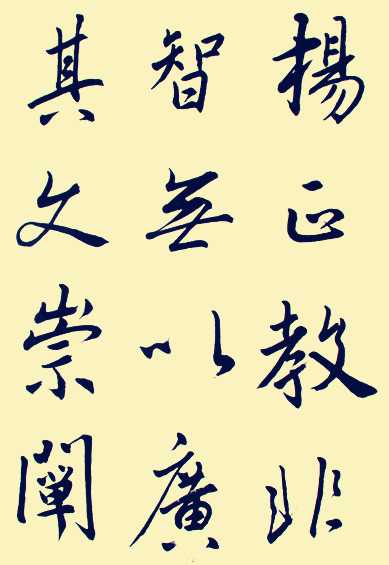 揚正教非
智無以廣
其文崇闡